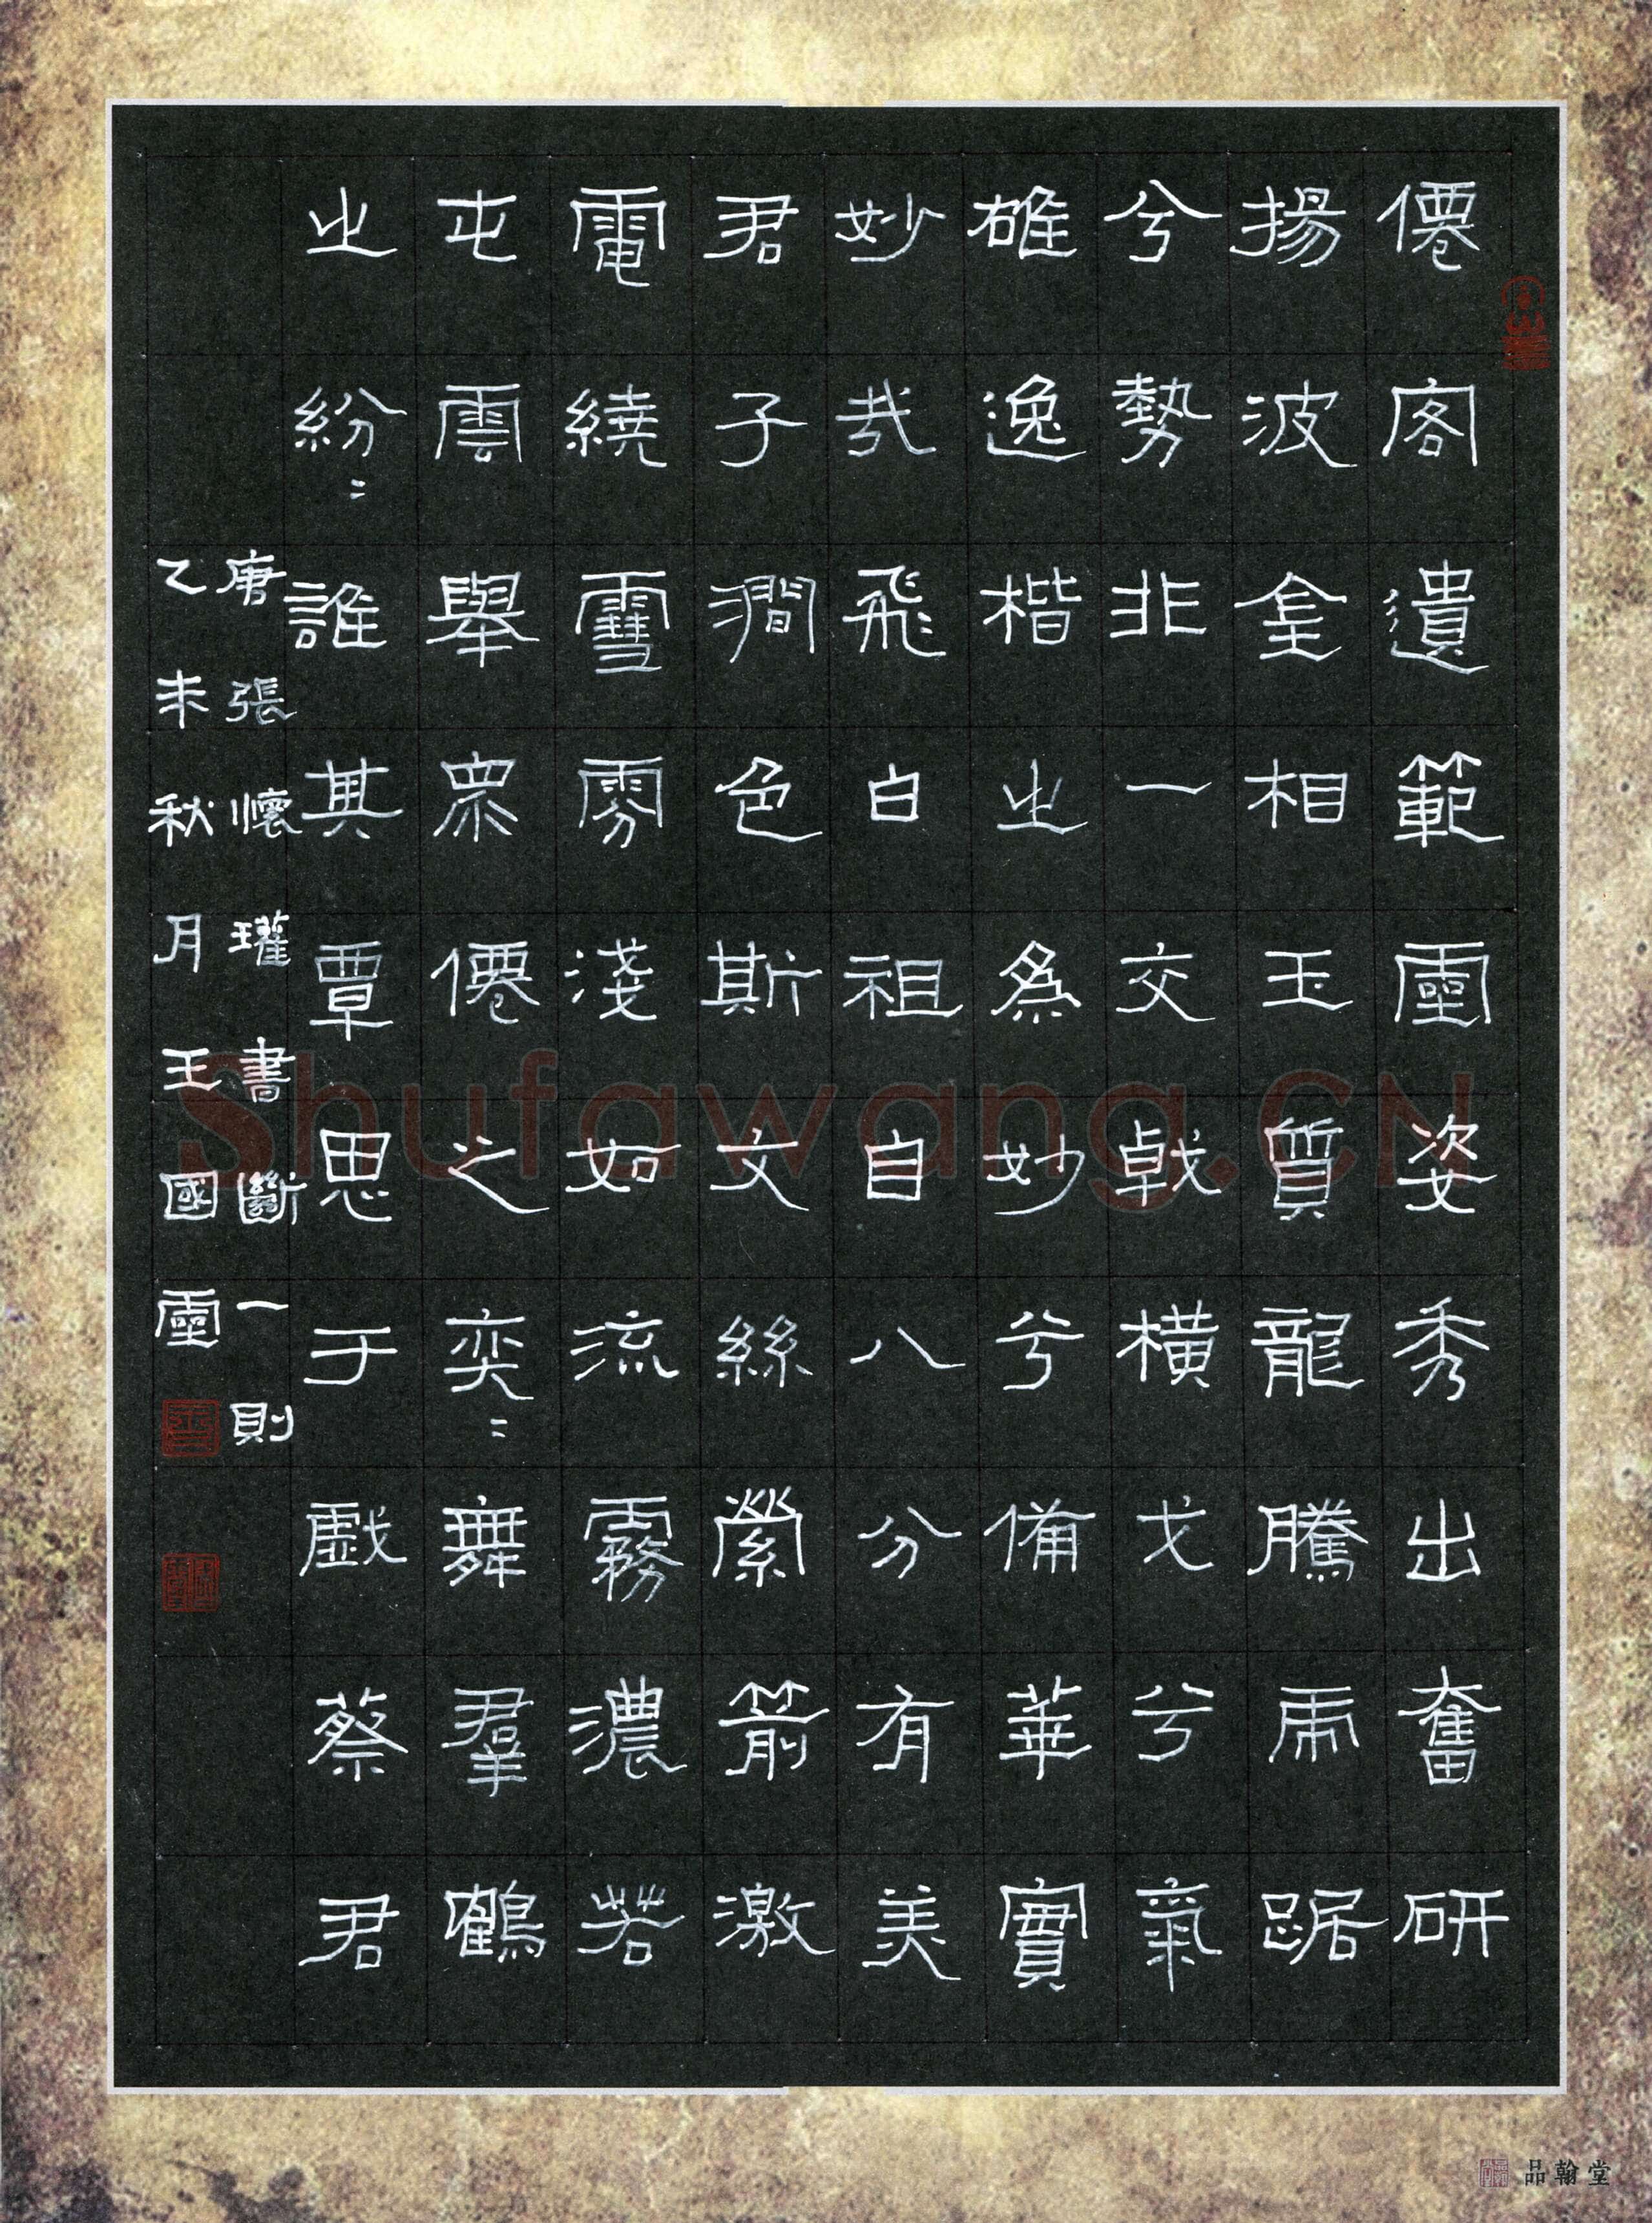 僊客遺範靈姿秀出奮研
揚波金相玉質龍騰虎踞
兮勢非一交戟橫戈兮氣
雄逸楷之為妙兮備華實
妙哉飛白祖自八分有美
君子澗色斯文絲縈箭激
電繞雪雰淺如流霧濃若
屯雲舉眾僊之奕〻舞羣鶴
之紛〻誰其覃思于戲蔡君
唐張懷瓘書斷一則
乙未秋月王國靈
Shufawang.CN
品翰堂